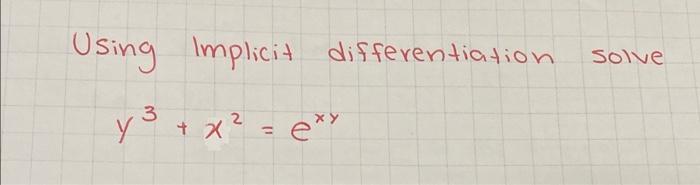 Using Implicit differentiation solve
y³ + x² = eˣʸ